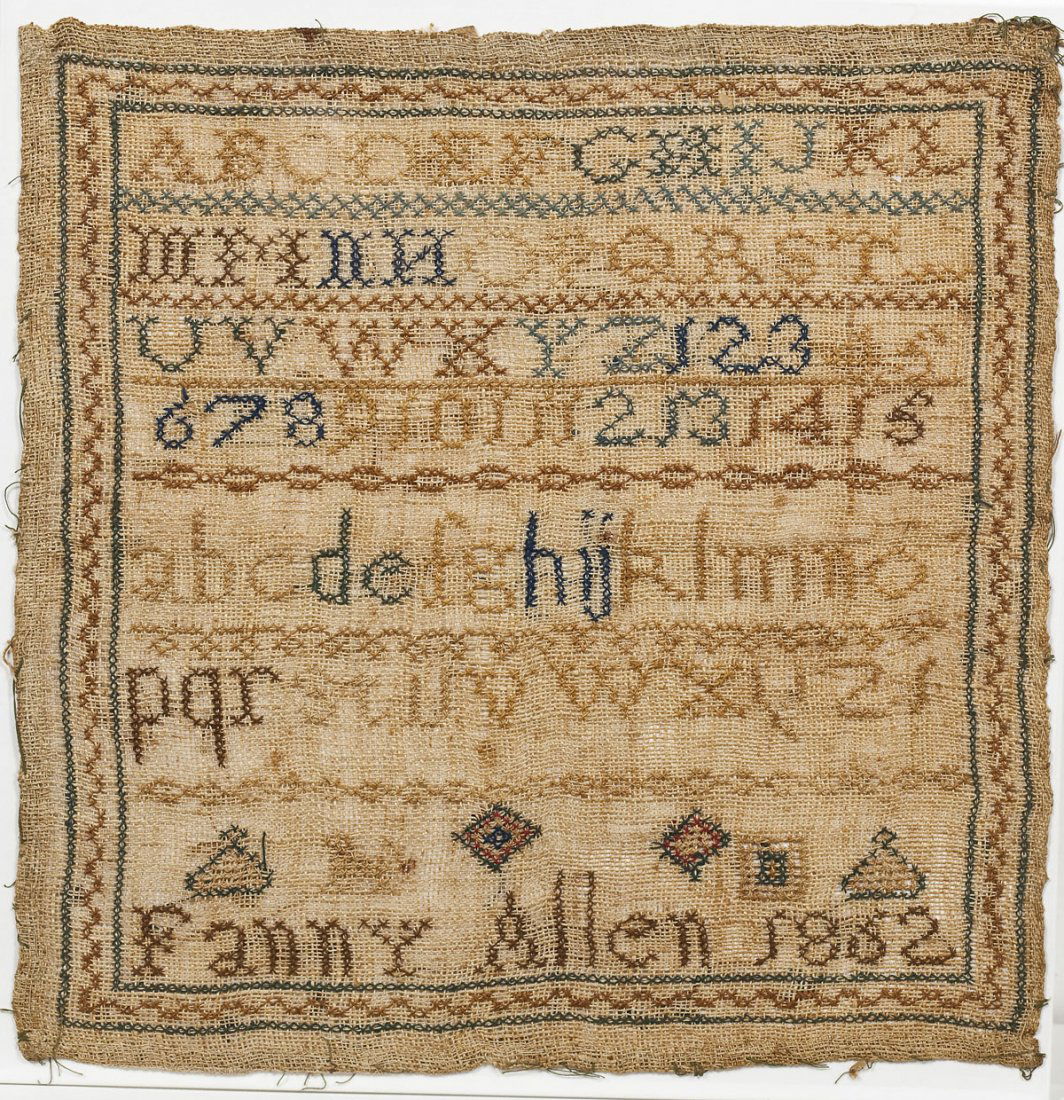 A B C D E F G H I J K L
M M N N O P Q R S T
U V W X Y Z 1 2 3 4 5
6 7 8 9 10 11 12 13 14 15
a b c d e f g h i j k l m n o
p q r s t u v w x y z
Fanny Allen 1862